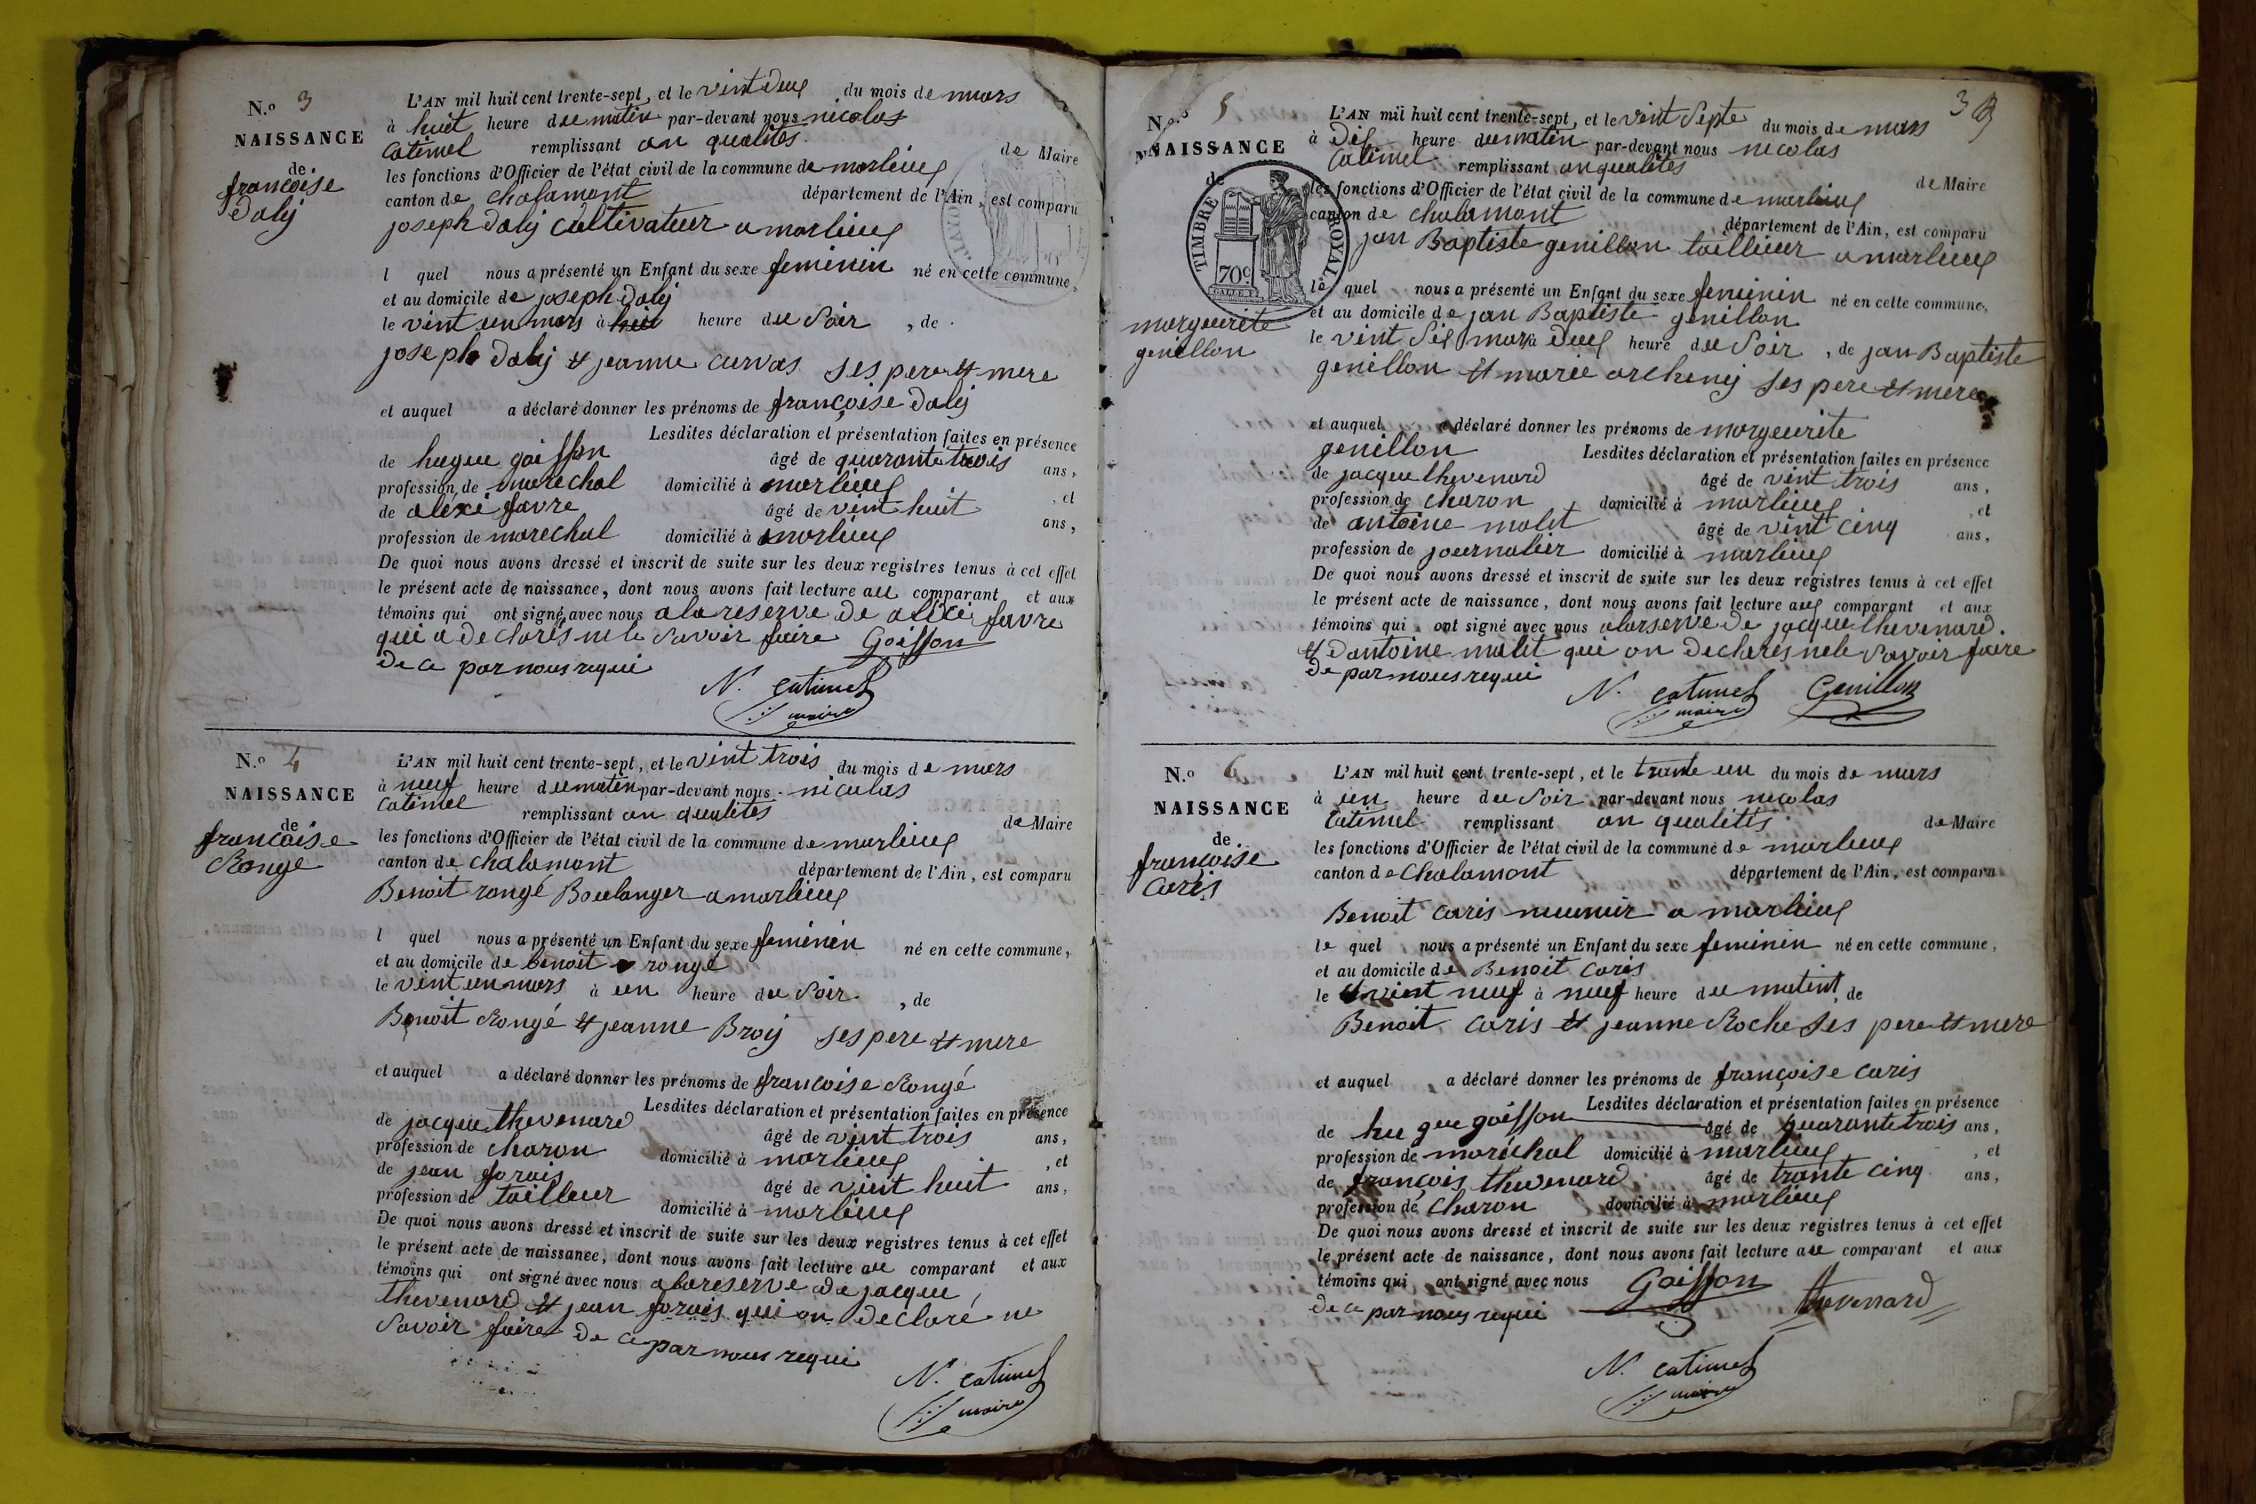 N.o 3
NAISSANCE
de
françoise
Daly
L'AN mil huit cent trente-sept, et le vint Deux du mois de mars
à huit heure du matin par-devant nous nicolas
Catimel remplissant an qualités de Maire
les fonctions d'Officier de l'état civil de la commune de marlieux
canton de chalamont département de l'Ain, est comparu
joseph Daly cultivateur a marlieux
l quel nous a présenté un Enfant du sexe feminin né en cette commune,
et au domicile de joseph Daly
le vint un mars à huit heure du Soir, de
joseph Daly et jeanne curvas ses pere et mere
et auquel a déclaré donner les prénoms de françoise Daly
Lesdites déclaration et présentation faites en présence
de hugue goiffon âgé de quarante trois ans,
profession de marechal domicilié à marlieux, et
de aléxi favre âgé de vint huit ans,
profession de marechal domicilié à marlieux
De quoi nous avons dressé et inscrit de suite sur les deux registres tenus à cet effet
le présent acte de naissance, dont nous avons fait lecture au comparant et aux
témoins qui ont signé avec nous a la reserve de alixi favre
qui a declarés ne le savoir faire Goiffon
De ce par nous requi
N. catimel
maire
N.o 4
NAISSANCE
de
francoise
Rongé
L'AN mil huit cent trente-sept, et le vint trois du mois de mars
à neuf heure du matin par-devant nous nicolas
Catimel remplissant an qualités de Maire
les fonctions d'Officier de l'état civil de la commune de marlieux
canton de chalamont département de l'Ain, est comparu
Benoit rongé Boulanger a marlieux
l quel nous a présenté un Enfant du sexe feminin né en cette commune,
et au domicile de benoit rongé
le vint un mars à un heure du Soir, de
Benoit Rongé et jeanne Broy ses pere et mere
et auquel a déclaré donner les prénoms de francoise Rongé
Lesdites déclaration et présentation faites en présence
de jacque thevenard âgé de vint trois ans,
profession de charon domicilié à marlieux, et
de jean forais âgé de vint huit ans,
profession de tailleur domicilié à marlieux
De quoi nous avons dressé et inscrit de suite sur les deux registres tenus à cet effet
le présent acte de naissance, dont nous avons fait lecture au comparant et aux
témoins qui ont signé avec nous a la reserve de jacque
thevenard et jean forais qui on declaré ne
savoir faire de ce par nous requi
N. catimel
maire
3
N.o 5
NAISSANCE
de
TIMBRE ROYAL
70c
marguerite
genillon
L'AN mil huit cent trente-sept, et le vint Septe du mois de mars
à Dix heure du matin par-devant nous nicolas
Catimel remplissant an qualités de Maire
les fonctions d'Officier de l'état civil de la commune de marlieux
canton de chalamont département de l'Ain, est comparu
jan Baptiste genillon tailleur a marlieux
le quel nous a présenté un Enfant du sexe feminin né en cette commune,
et au domicile de jan Baptiste genillon
le vint Six mars à Deux heure du Soir, de jan Baptiste
genillon et marie archeny ses pere et mere
et auquel a déclaré donner les prénoms de margeurite
genillon Lesdites déclaration et présentation faites en présence
de jacque thevenard âgé de vint trois ans,
profession de charon domicilié à marlieux, et
de antoine malit âgé de vint cinq ans,
profession de journalier domicilié à marlieux
De quoi nous avons dressé et inscrit de suite sur les deux registres tenus à cet effet
le présent acte de naissance, dont nous avons fait lecture aux comparant et aux
témoins qui ont signé avec nous a la rserve de jacque thevenard
et d'antoine malit qui on declarés ne le savoir faire
De par nous requi
N. catimel Genillon
maire
N.o 6
NAISSANCE
de
françoise
Caris
L'AN mil huit cent trente-sept, et le trante un du mois de mars
à un heure du Soir par-devant nous nicolas
Catimel remplissant an qualités de Maire
les fonctions d'Officier de l'état civil de la commune de marlieux
canton de Chalamont département de l'Ain, est comparu
Benoit caris meunier a marlieux
le quel nous a présenté un Enfant du sexe feminin né en cette commune,
et au domicile de Benoit caris
le vint neuf à neuf heure du matint, de
Benoit caris et jeanne Roche ses pere et mere
et auquel a déclaré donner les prénoms de françoise caris
Lesdites déclaration et présentation faites en présence
de hugue goiffon âgé de quarante trois ans,
profession de maréchal domicilié à marlieux, et
de françois thevenard âgé de trante cinq ans,
profession de charon domicilié à marlieux
De quoi nous avons dressé et inscrit de suite sur les deux registres tenus à cet effet
le présent acte de naissance, dont nous avons fait lecture au comparant et aux
témoins qui ont signé avec nous Goiffon
De ce par nous requi thevenard
N. catimel
maire